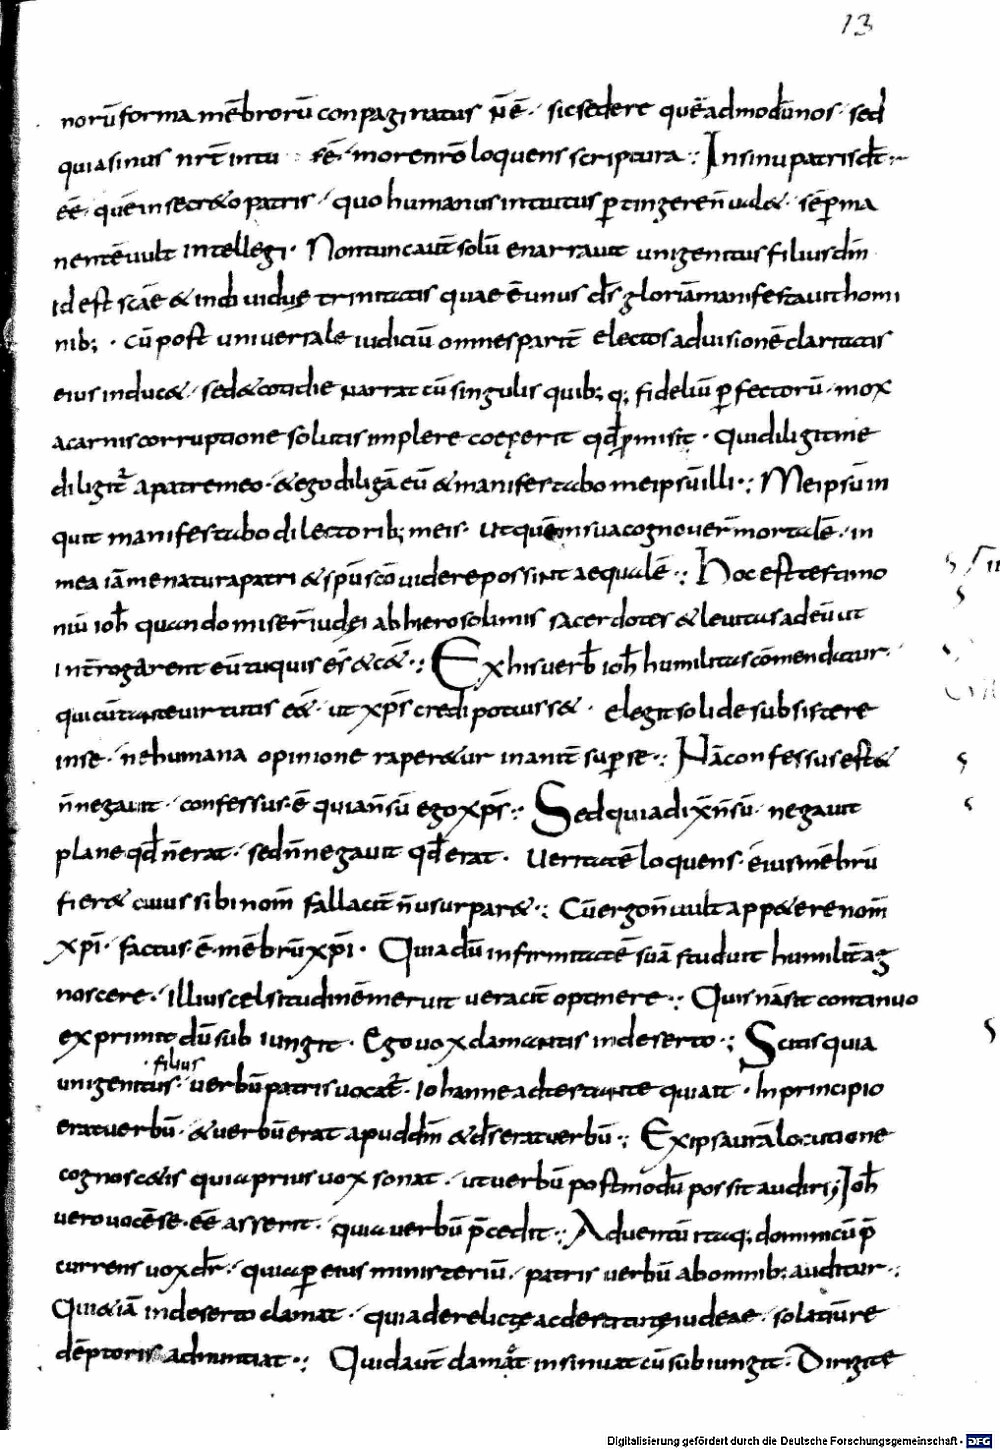 13
norū forma mēbrorū conpaginatus n̄ ē · sic sedere quē admodū nos · sed
quia sinus nr̄ intu s̄ ē · more nr̄o loquens scriptura ·: In sinu patris dt̄
ēē · quē in secr&o patris · quo humanus intuitus ꝑtingere n̄ ual& · sēꝑma
nentē uult intellegi · Non tunc aut̄ solū enarrauit unigenitus filius dm̄
id est scāe & indiuidue trinitatis quae ē unus ds̄ gloriā manifestauit homi
nib; · cū post uniuersale iudiciū omnes parit̄ electos ad uisionē claritatis
eius induc& · sed & cotidie narrat cū singulis quib; q; fideliū ꝑfectorū · mox
a carnis corruptione solutis implere coeperit qd̄ ꝓmisit · Qui diligit me
diligit̄ a patre meo · & ego diligā eū & manifestabo me ipsū illi ·: Me ipsū in
quit manifestabo dilectorib; meis · ut quē in sua cognouer̄ mortalē · in
mea iā me natura patri & sp̄ui sc̄o uidere possint aequalē ·: Hoc est testimo
niū ioh̄ quando miser̄ iudęi ab hierosolimis sacerdotes & leuitas ad eū ut
int̄rogarent eū tu quis ēs & c&̄ ·: Ex his uerb̄ ioh̄ humilitas cōmendatur ·
qui cū tante uirtutis ee&̄ · ut xp̄s credi potuiss& · elegit solide subsistere
in se · ne humana opinione raper&ur inanit̄ suꝑ se ·: Nā confessus est &
n̄ negauit · confessus · ē quia n̄ sū ego xp̄s ·: Sed quia dix̄ n̄ sū · negauit
plane qd̄ n̄ erat · sed n̄ negauit qd̄ erat · Ueritatē loquens · eius mēbrū
fier& cuius sibi nom̄ fallacit̄ n̄ usurpar& ·: Cū ergo n̄ uult app&ere nom̄
xp̄i · factus · ē mēbrū xp̄i · Quia dū infirmitatē suā studuit humilit̄ ag
noscere · illius celsitudinē meruit ueracit̄ optinere ·: Quis nā sit continuo
exprimit dū subiungit · Ego uox clamantis in deserto ·; Scitis quia
· filius
unigenitus · uerbū patris uocat̄ · iohanne adtestante qui ait · In principio
erat uerbū · & uerbū erat apud dm̄ & ds̄ erat uerbū ·; Ex ipsa ur̄ā locutione
cognosc&is quia prius uox sonat · ut uerbū postmodū possit audiri; Ioh̄
uero uocē se · ēē asserit · quia uerbū p̄cedit ·: Aduentū itaq; dominicū p̄
currens uox dr̄ · quia ꝑ eius ministeriū · patris uerbū ab omnib; auditur ·:
Qui & iā in deserto clamat · quia derelictę ac destitutę iudeae · solatiū re
dēptoris adnuntiat ·: Quid aut̄ clamat insinuat cū subiungit · Dirigite
Digitalisierung gefördert durch die Deutsche Forschungsgemeinschaft - DFG